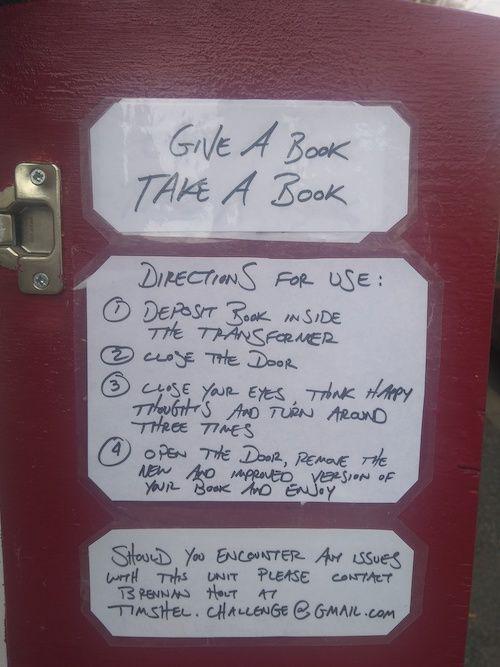 GIVE A BOOK
TAKE A BOOK
DIRECTIONS FOR USE:
1 DEPOSIT BOOK INSIDE
THE TRANSFORMER
2 CLOSE THE DOOR
3 CLOSE YOUR EYES, THINK HAPPY
THOUGHTS AND TURN AROUND
THREE TIMES
4 OPEN THE DOOR, REMOVE THE
NEW AND IMPROVED VERSION OF
YOUR BOOK AND ENJOY
SHOULD YOU ENCOUNTER ANY ISSUES
WITH THIS UNIT PLEASE CONTACT
BRENNAN HOLT AT
TIMSHEL.CHALLENGE@GMAIL.COM